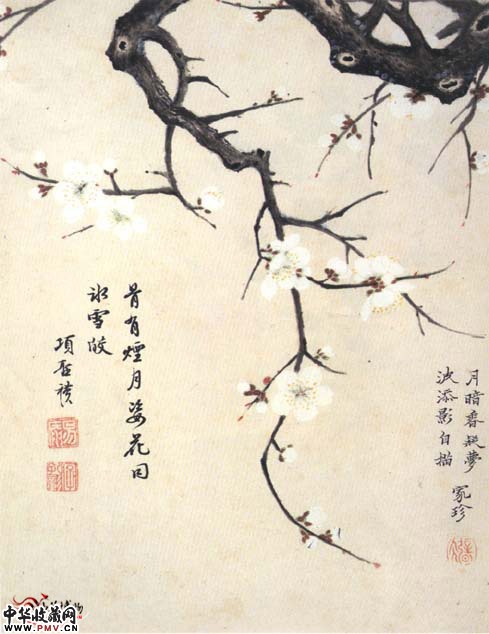 月暗香凝夢
波添影自描 家珍
骨有煙月姿花同
冰雪皎
項
中华收藏网
WWW.PMV.CN